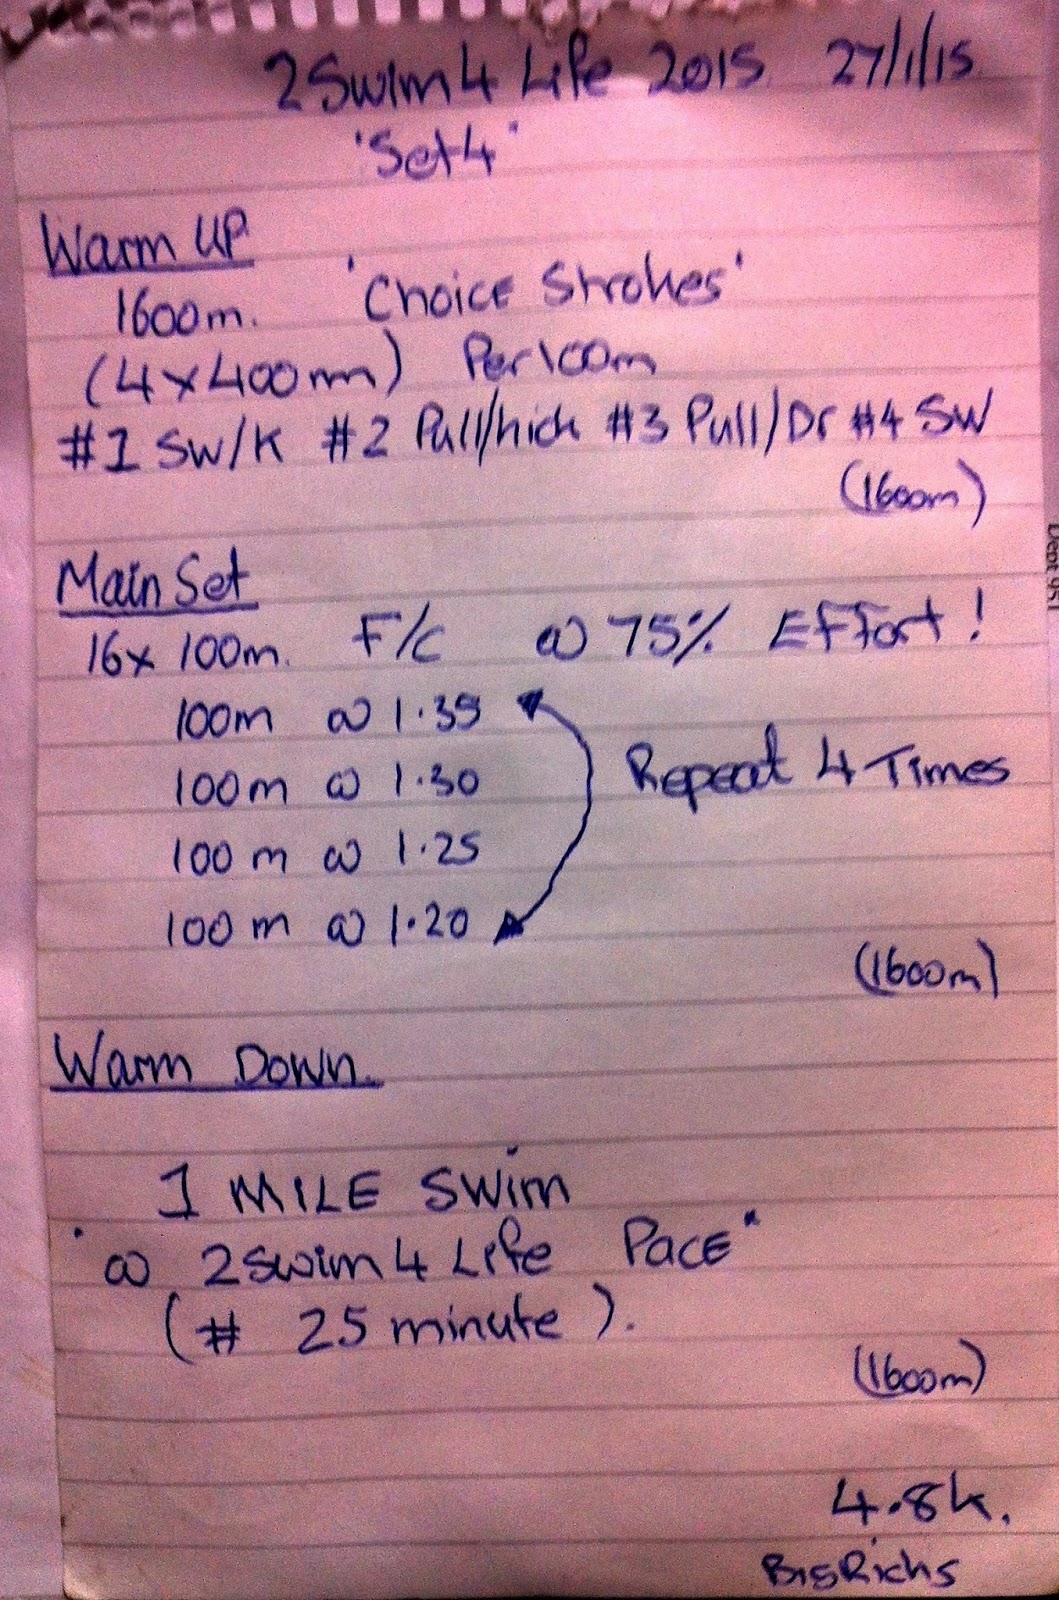 2Swim4 Life 2015 27/1/15
'Set4'
Warm UP
1600m. 'Choice Strokes'
(4x400m) Per 100m
#1 SW/K #2 Pull/kick #3 Pull/Dr #4 SW
(1600m)
Main Set
16x 100m. F/c @ 75% Effort!
100m @ 1.35
100m @ 1.30
Repeat 4 Times
100m @ 1.25
100m @ 1.20
(1600m)
Warm Down.
1 MILE Swim
"@ 2swim4 Life Pace"
(# 25 minute).
(1600m)
4.8k.
BigRichs